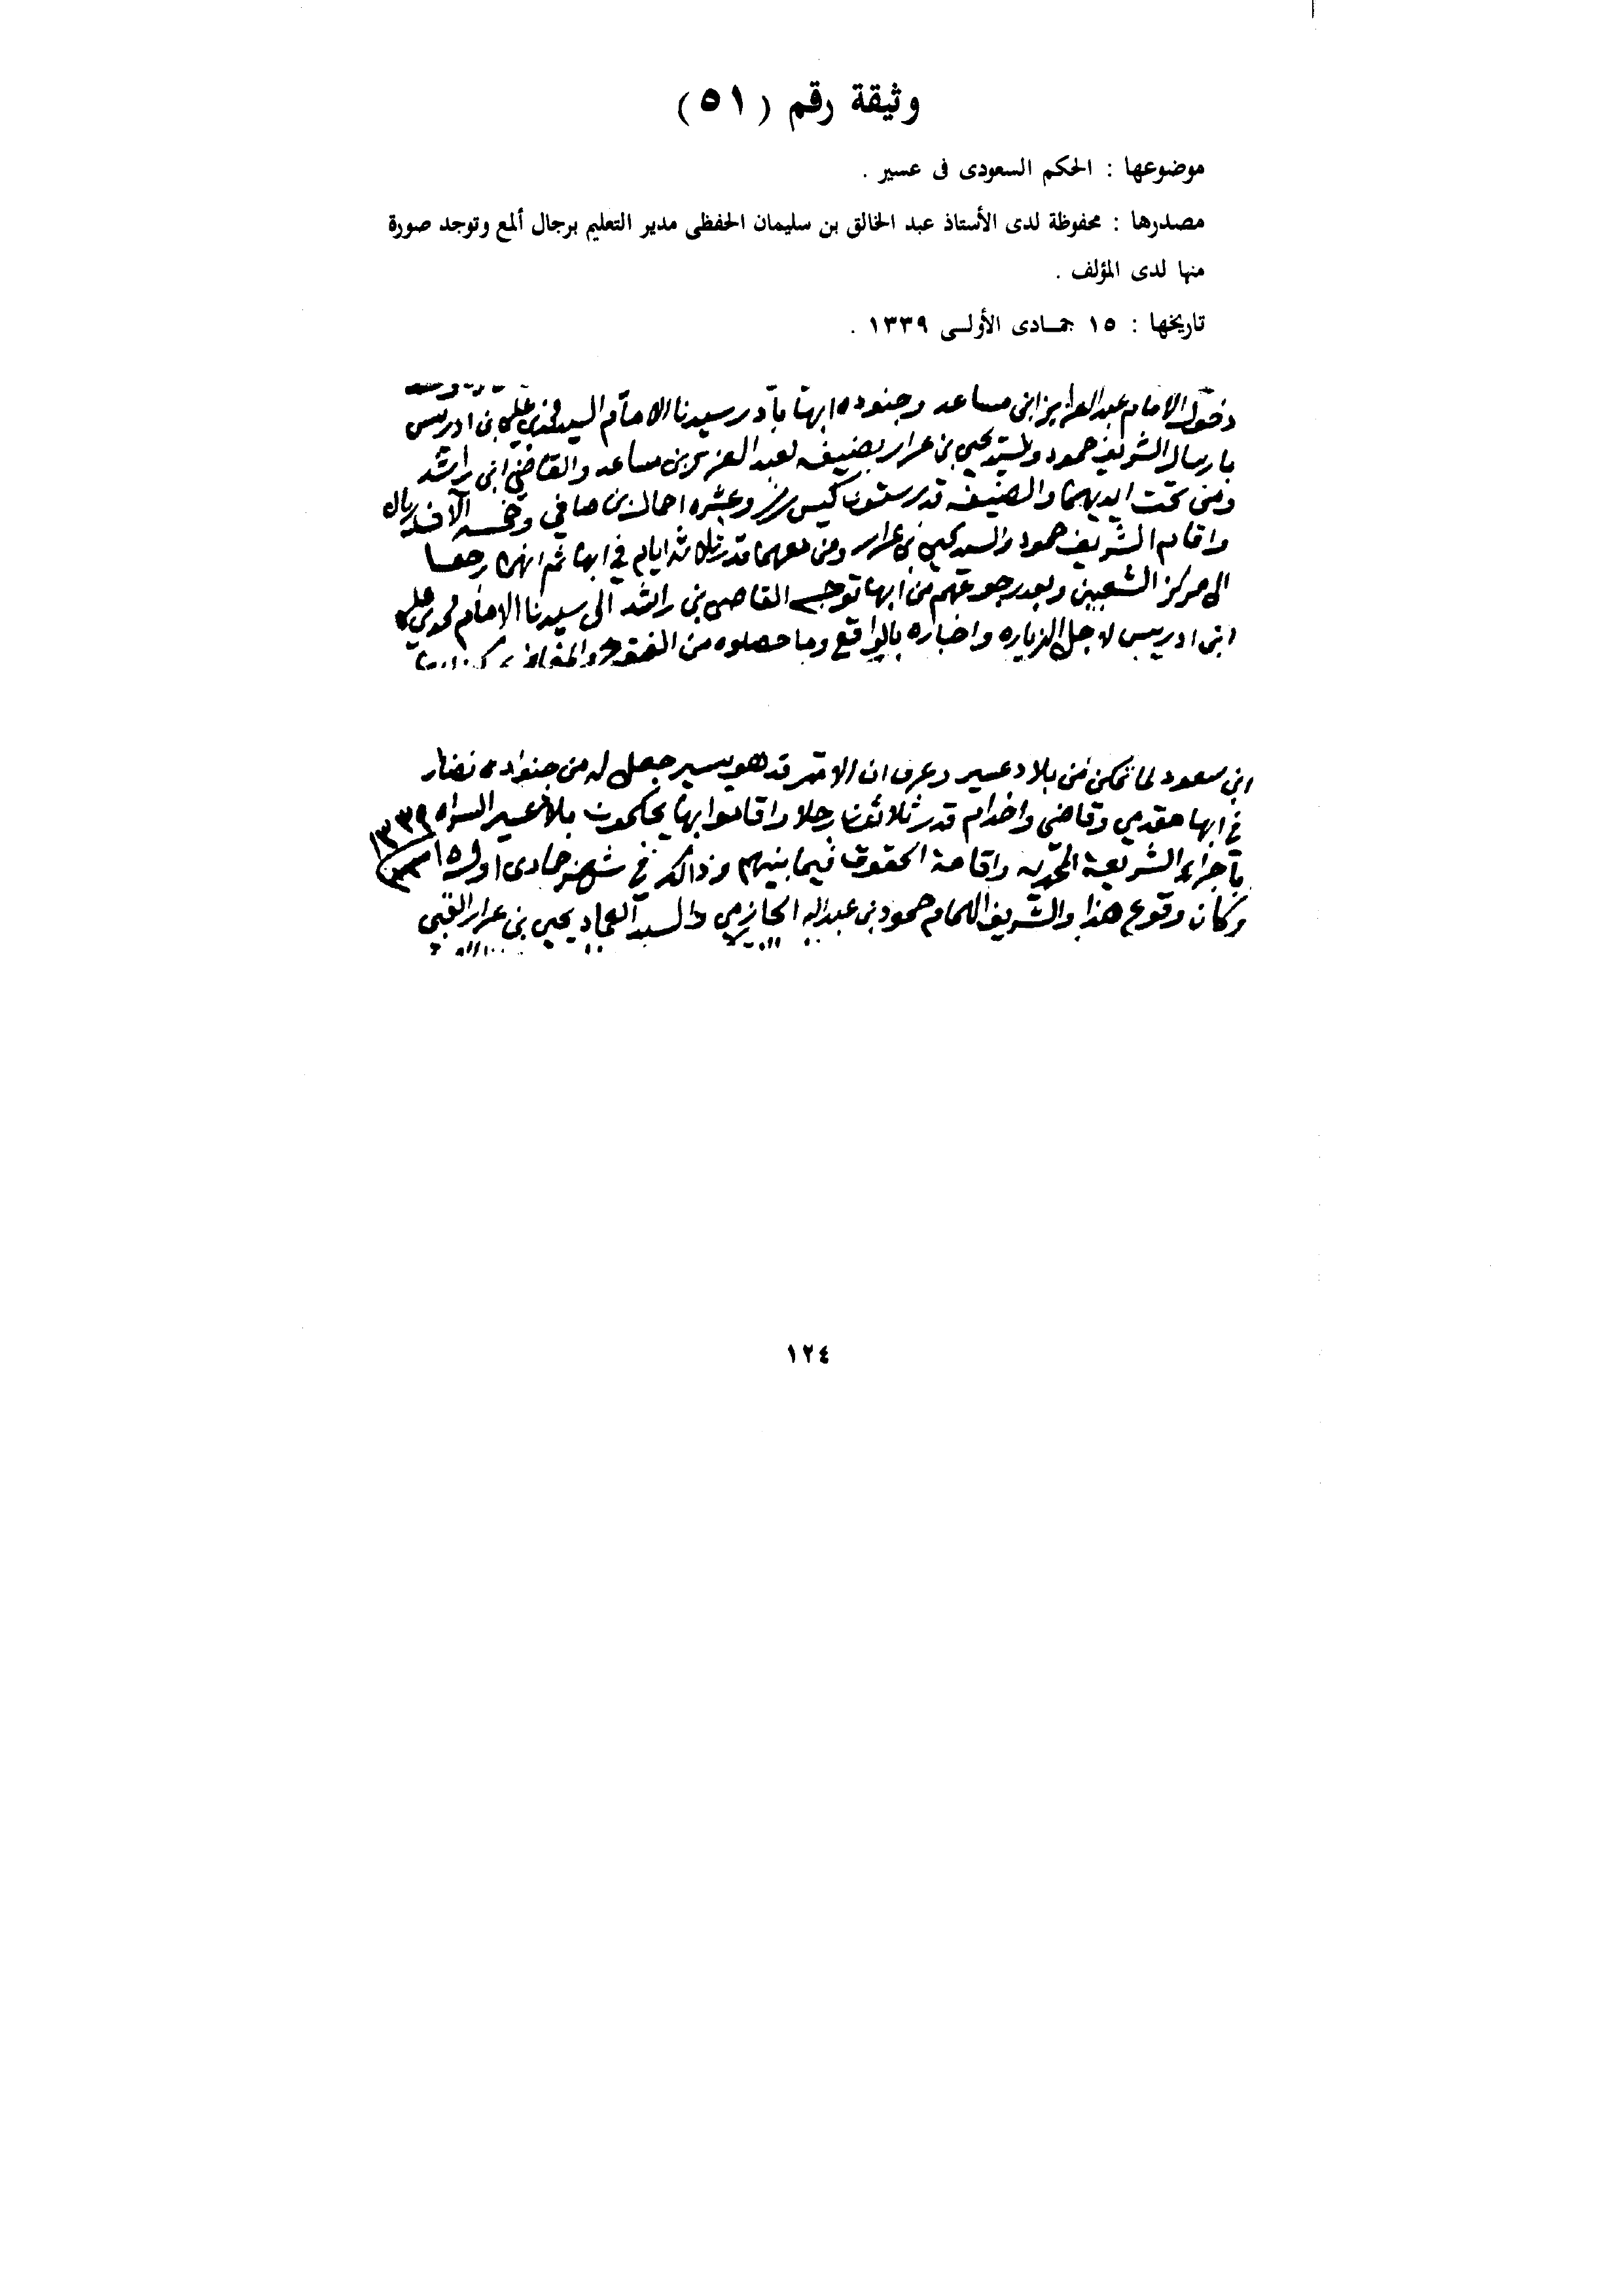 وثيقة رقم (٥١)
موضوعها : الحكم السعودى فى عسير .
مصدرها : محفوظة لدى الأستاذ عبد الخالق بن سليمان الحفظى مدير التعليم برجال ألمع وتوجد صورة
منها لدى المؤلف .
تاريخها : ١٥ جمادى الأولى ١٣٣٩ .
دخول الامام عبد العزيز ابن مساعد وجنوده ابها بادر سيدنا الامام السيد بن علي بن ادريس
بارسال الشريف حمود والسيد يحيى بن عرار بضيفه لعبد العزيز بن مساعد والقاضي ابن راشد
ومن تحت ايديهما والضيفه قدر ستون كيس رز وعشره احمال بن صافي وخمسه آلاف ريال
واقام الشريف حمود والسيد يحيى بن عرار ومن معهما قدر ثلاثه ايام في ابها ثم انهما رجعا
الى مركز الشعبين وبعد رجوعهم من ابها توجه القاضي بن راشد الى سيدنا الامام محمد بن علي
ابن ادريس لاجل الزياره واخباره بالواقع وما حصلوه من النقود
ابن سعود لما تمكن من بلاد عسير وعرف ان الامر قد هو يسير جعل له من جنوده نضار
في ابها مقدمي وقاضي واخدام قدر ثلاثون رجلا واقاموا بها يحكمون بلاد عسير السراه ١٣٣٩
بأجراء الشريعة المحمديه واقامة الحقوق فيما بينهم وذالك في شهر جمادى اول ١٥
وكان وقوع هذا والشريف الهمام حمود بن عبدالله الحازمي والسيد العماد يحيى بن عرار النعمي
١٢٤